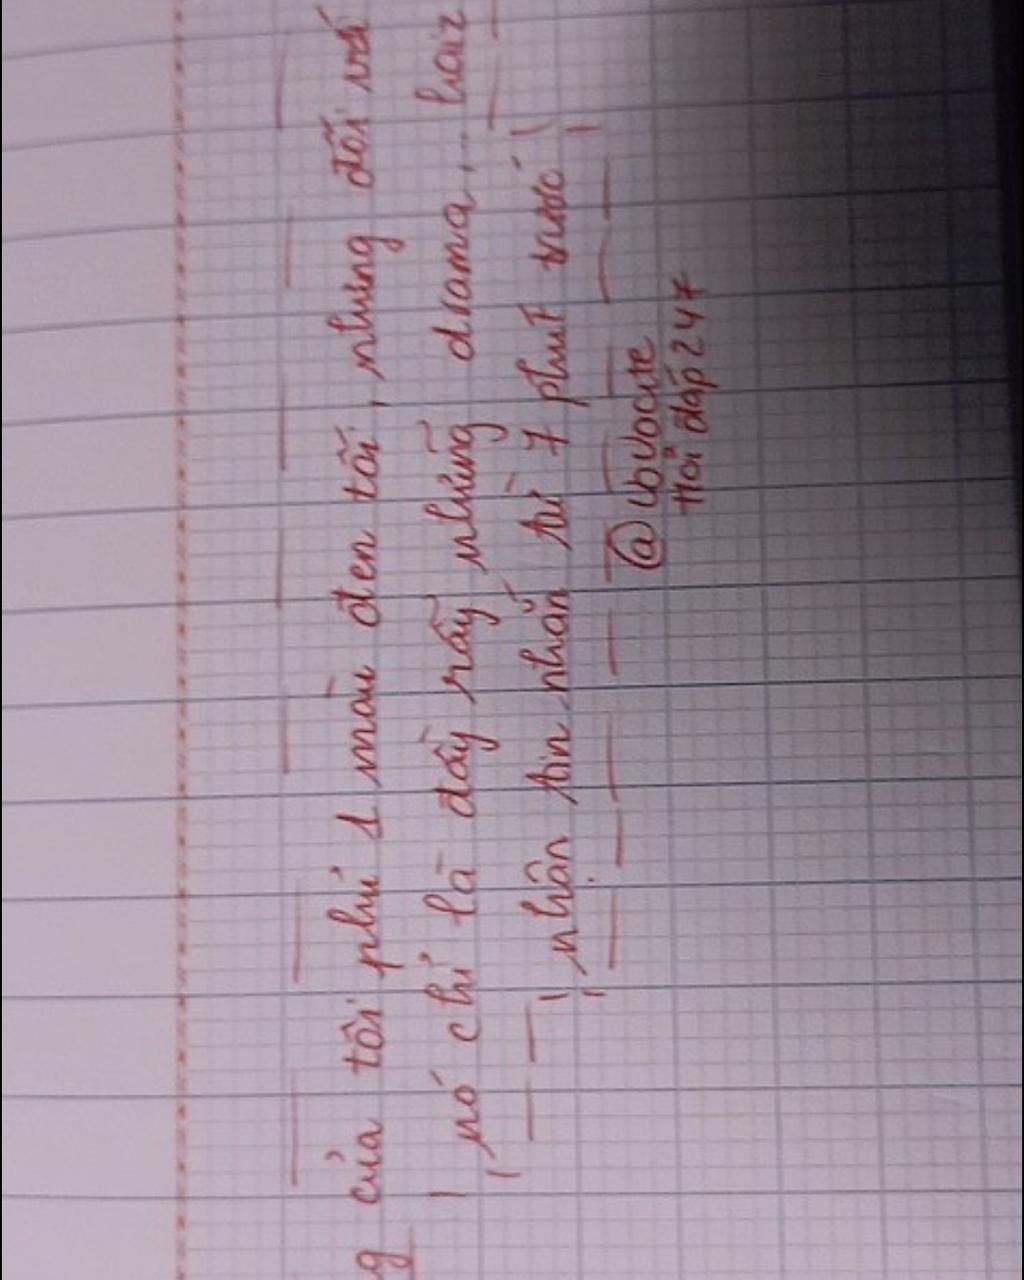 g của tôi phủ 1 màu đen tối, nhưng đối với
nó chỉ là đầy rẫy những drama,.. hair
nhận tin nhắn từ 7 phút trước
@
Hỏi đáp 247